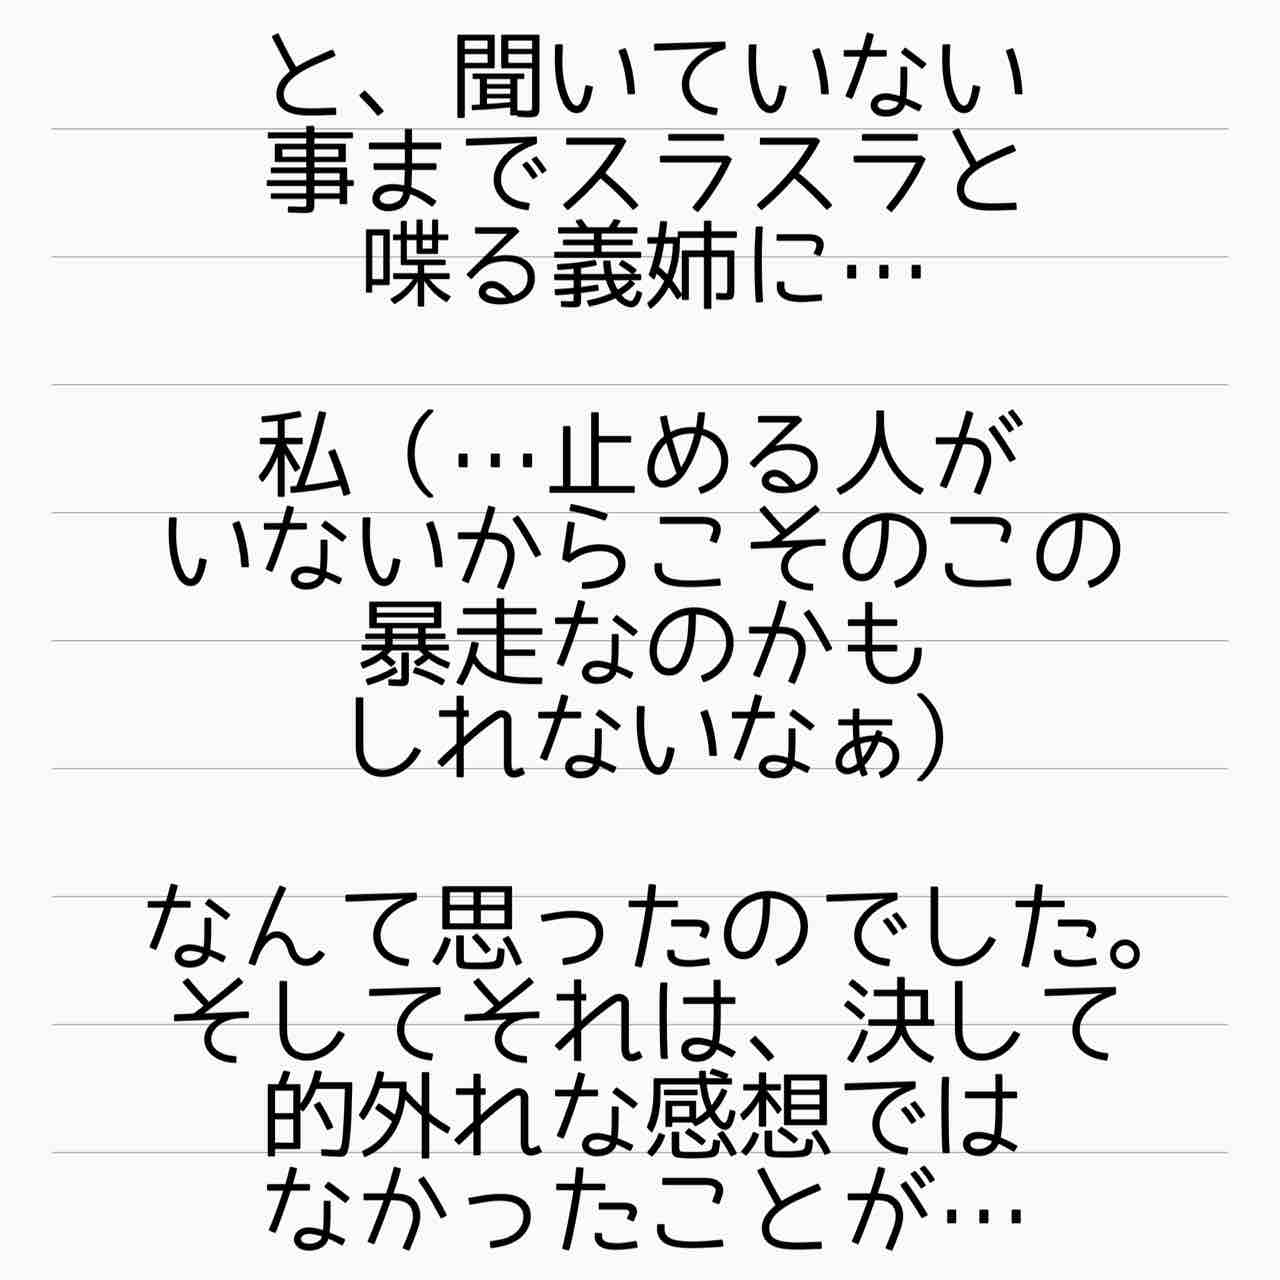 と、聞いていない
事までスラスラと
喋る義姉に…
私（…止める人が
いないからこそのこの
暴走なのかも
しれないなぁ）
なんて思ったのでした。
そしてそれは、決して
的外れな感想では
なかったことが…